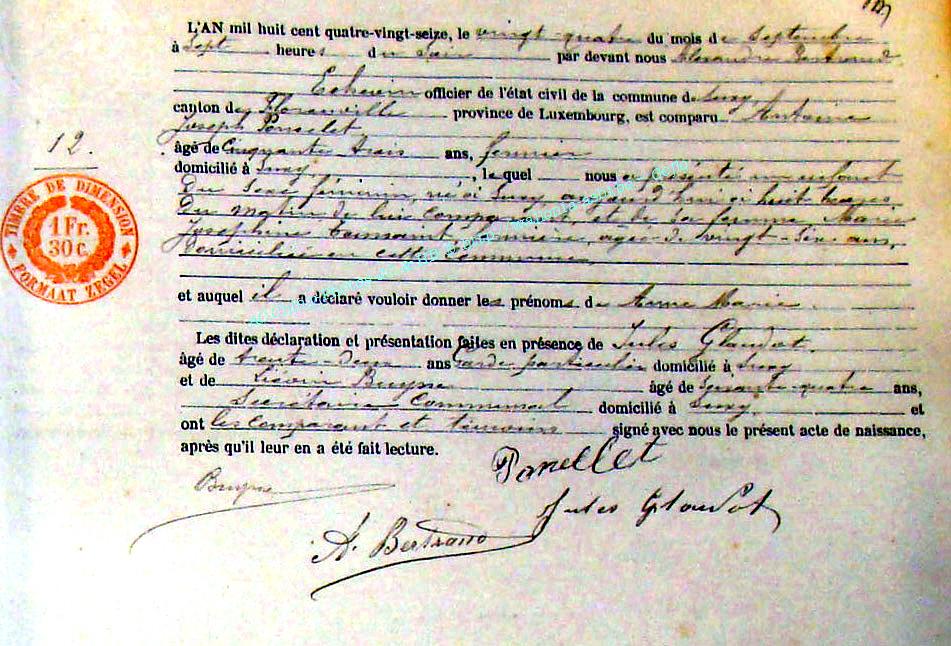 L'AN mil huit cent quatre-vingt-seize, le vingt-quatre du mois de Septembre
à Sept heures du Soir par devant nous Alexandre Bertrand
Echevin officier de l'état civil de la commune de Suxy
canton de Florenville province de Luxembourg, est comparu Antoine
Joseph Poncelet
12.
âgé de Cinquante trois ans, fermier
domicilié à Suxy, lequel nous a présenté un enfant
du sexe féminin, né à Suxy, aujourd'hui à huit heures
du matin de lui comparant et de sa femme Marie
Joséphine fermière, âgée de vingt-six ans,
domiciliée en cette Commune,
TIMBRE DE DIMENSION
1 Fr.
30 c.
FORMAAT ZEGEL
et auquel il a déclaré vouloir donner les prénoms de Anne Marie
Les dites déclaration et présentation faites en présence de Jules Glaudot,
âgé de trente-deux ans Garde particulier domicilié à Suxy
et de Bruyne âgé de Soixante-quatre ans,
Secrétaire Communal domicilié à Suxy et
ont les comparant et témoins signé avec nous le présent acte de naissance,
après qu'il leur en a été fait lecture.
Ponellet
Bruyne
Jules Glaudot
A. Bertrand